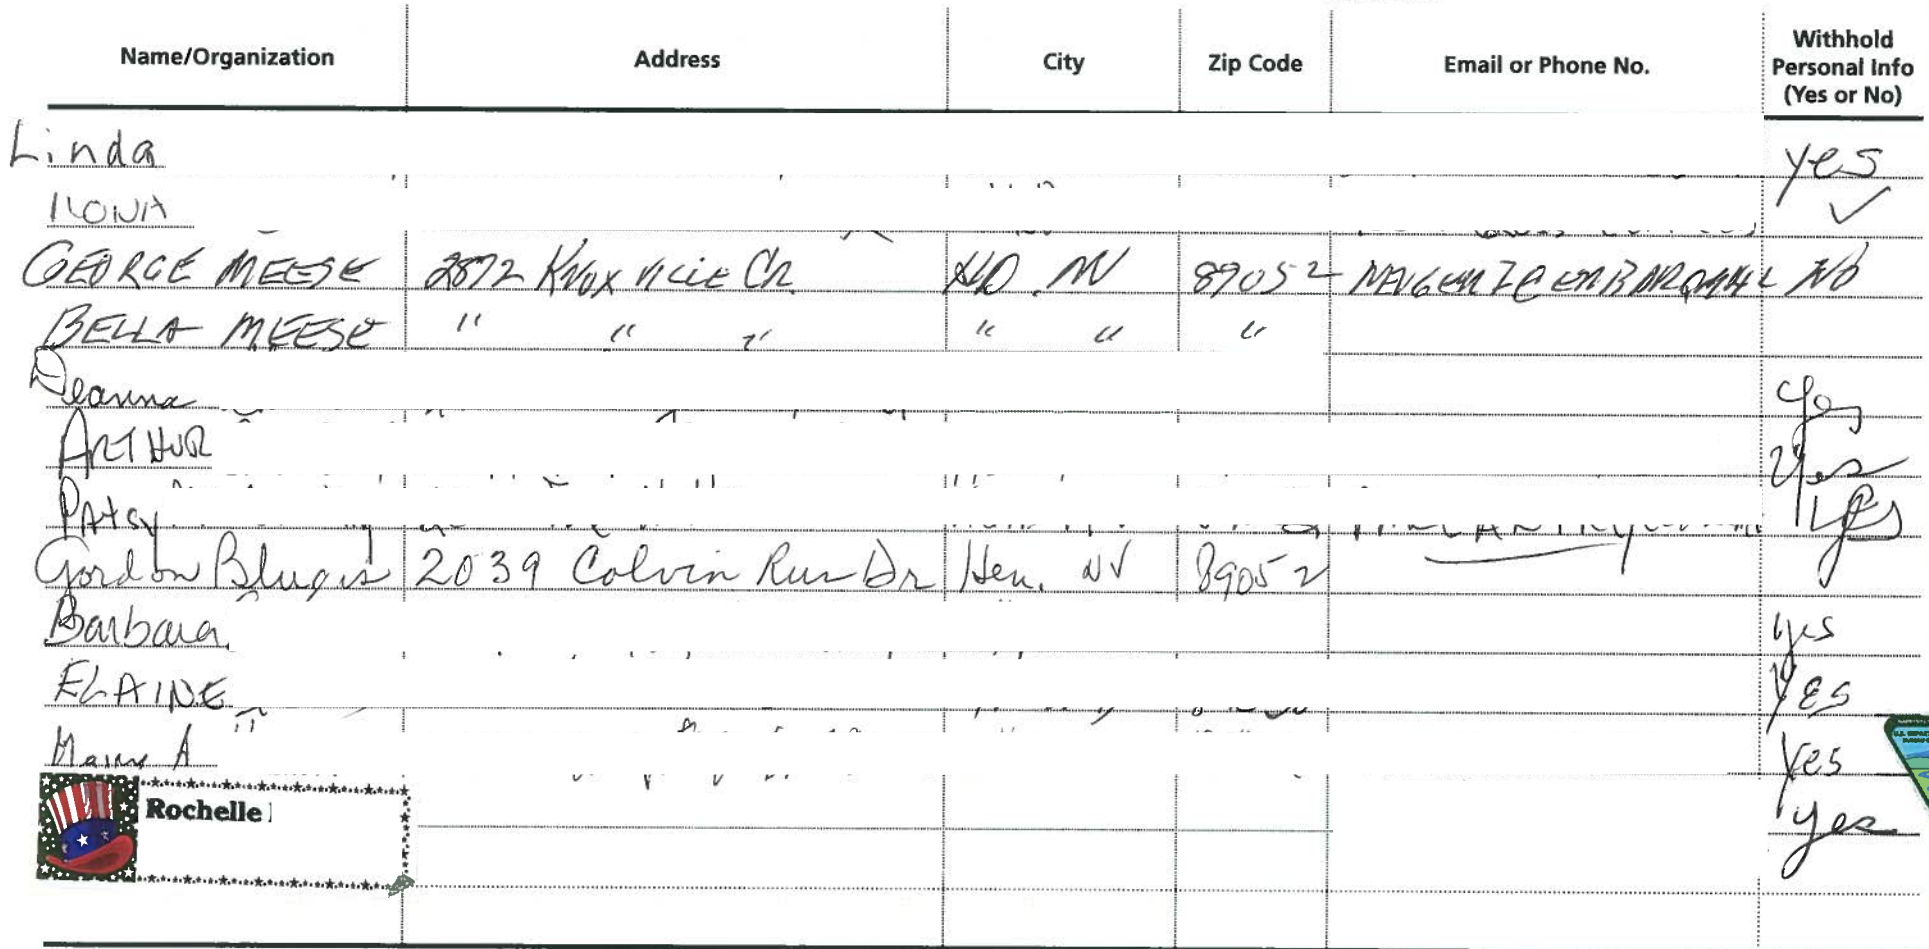 Name/Organization Address City Zip Code Email or Phone No. Withhold Personal Info (Yes or No)
Linda yes
ILONA ✓
GEORGE MEESE 2872 KNOXVILLE Cr. HD. NV 89052 No
BELLA MEESE " " " " " "
Deanna Yes
ARTHUR Yes
PAtsy Yes
Gordon 2039 Colvin Run Dr Hen. NV 89052
Barbara yes
ELAINE YES
A Yes
Rochelle yes